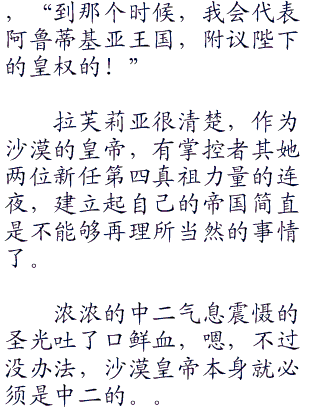 ，“到那个时候，我会代表
阿鲁蒂基亚王国，附议陛下
的皇权的！”
拉芙莉亚很清楚，作为
沙漠的皇帝，有掌控者其她
两位新任第四真祖力量的连
夜，建立起自己的帝国简直
是不能够再理所当然的事情
了。
浓浓的中二气息震慑的
圣光吐了口鲜血，嗯，不过
没办法，沙漠皇帝本身就必
须是中二的。。